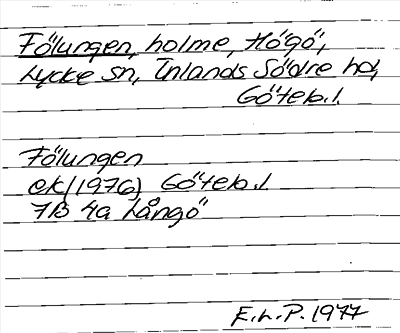 Fölungen, holme, Högö,
Lycke sn, Inlands Södre hd,
Göteb. l.
Fölungen
ek (1976) Göteb. l.
7B 4a Långö
E. L. P. 1977